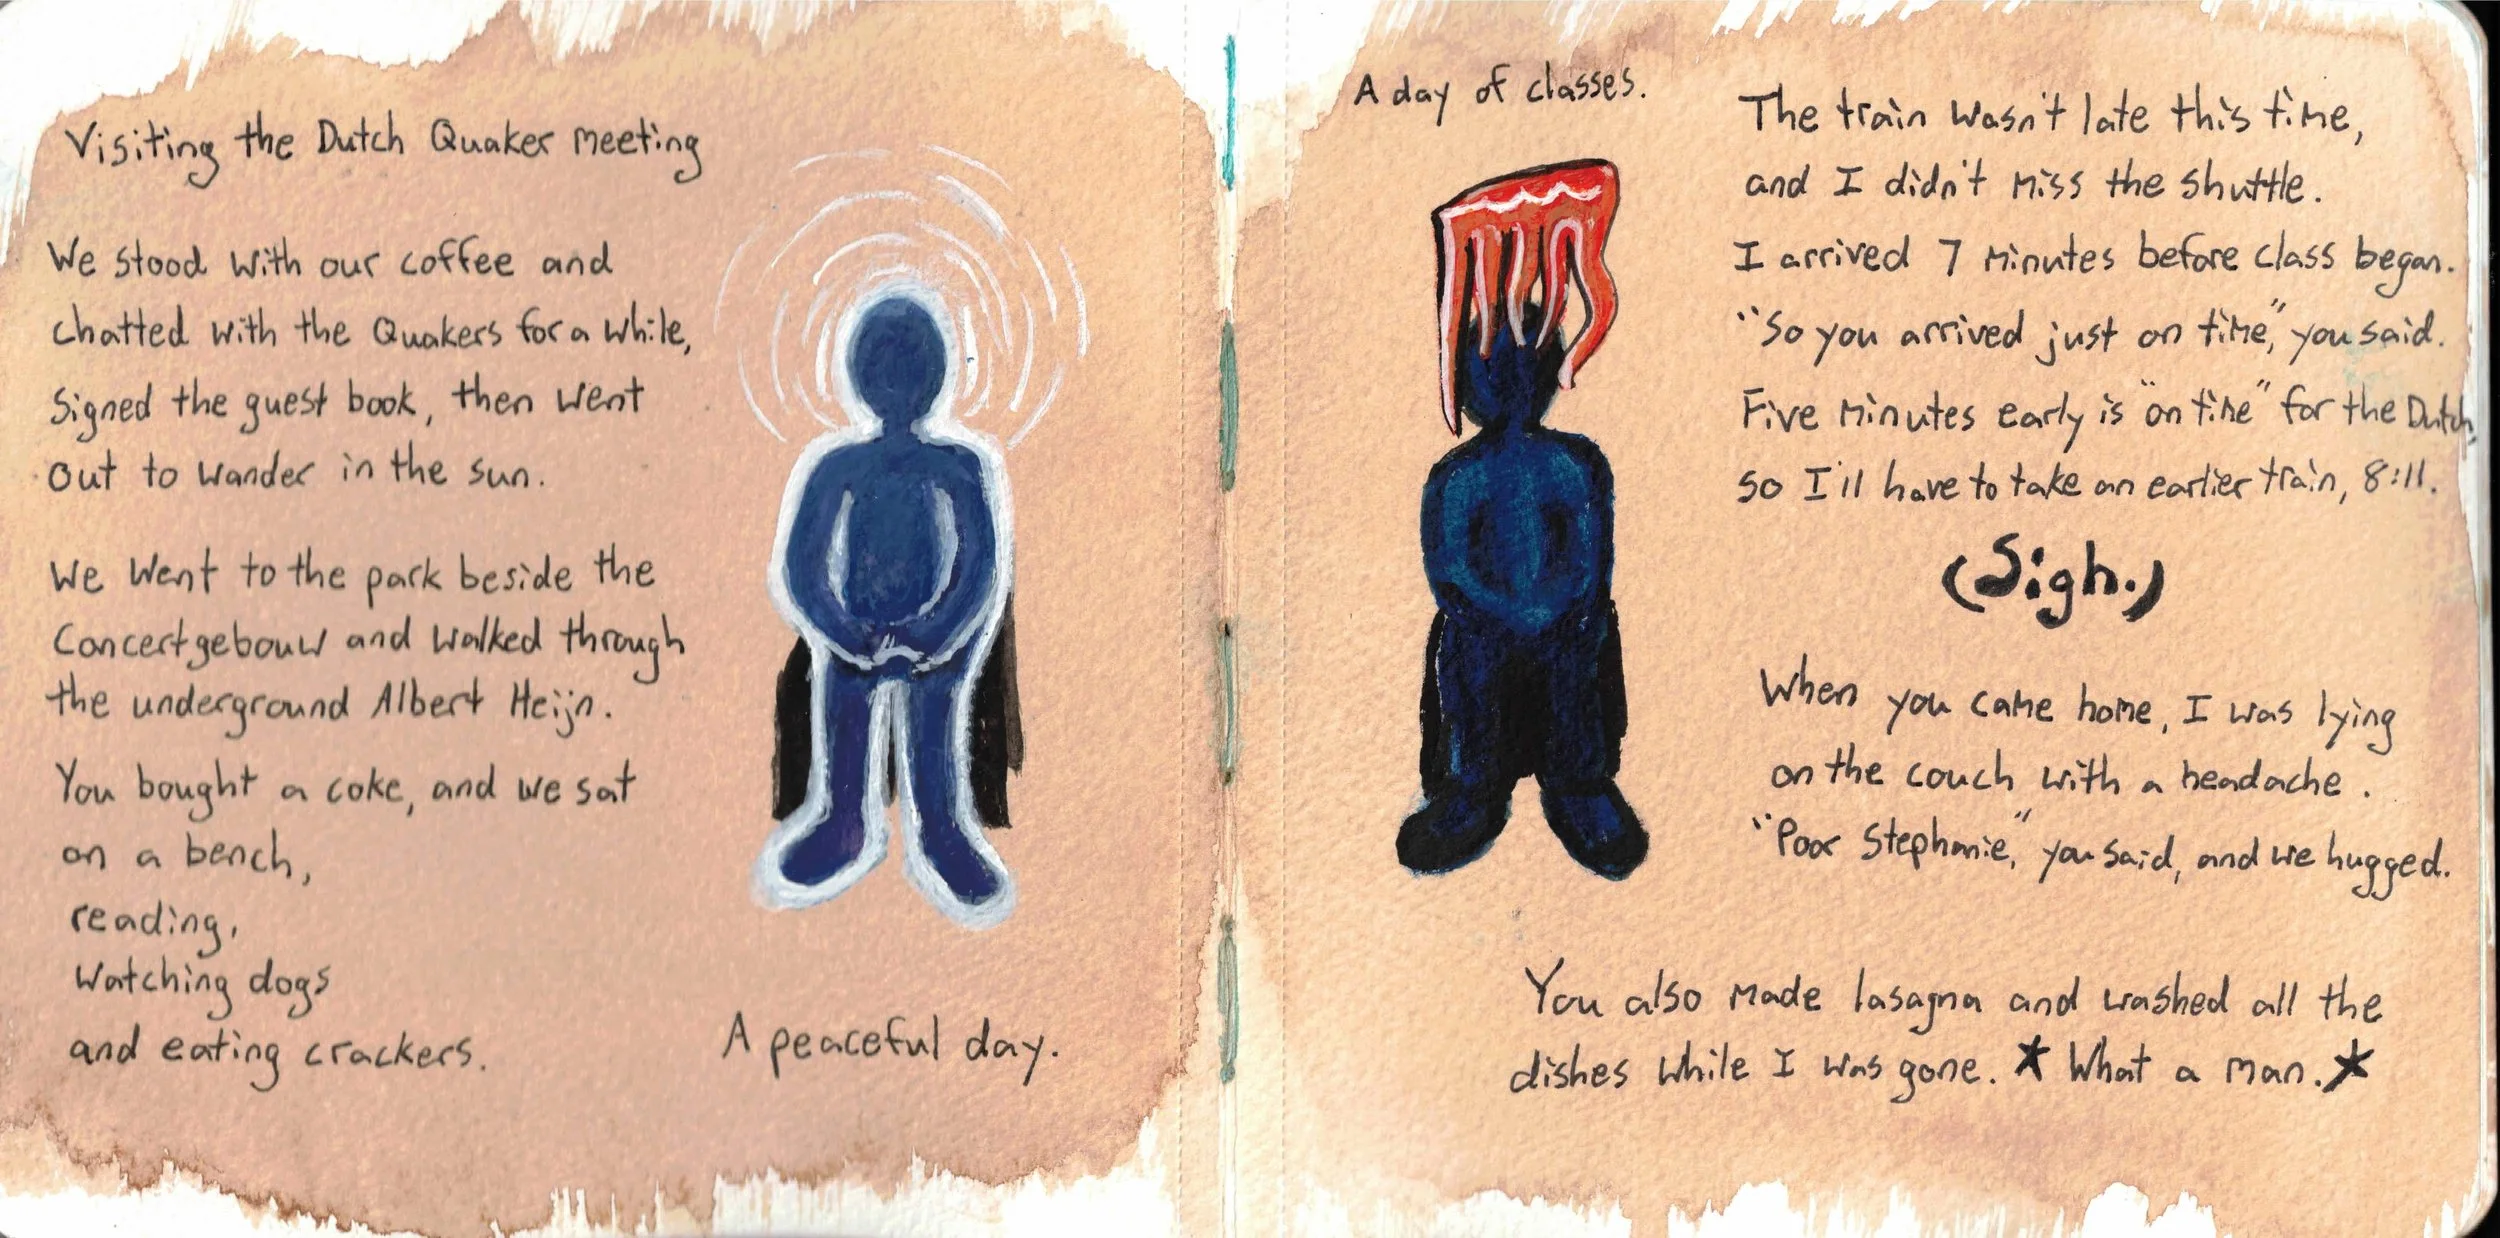 Visiting the Dutch Quaker meeting
We stood with our coffee and
chatted with the Quakers for a while,
signed the guest book, then went
out to wander in the sun.
We went to the park beside the
Concertgebouw and walked through
the underground Albert Heijn.
You bought a coke, and we sat
on a bench,
reading,
watching dogs
and eating crackers.
A peaceful day.
A day of classes.
The train wasn't late this time,
and I didn't miss the shuttle.
I arrived 7 minutes before class began.
"So you arrived just on time," you said.
Five minutes early is "on time" for the Dutch,
so I'll have to take an earlier train, 8:11.
(Sigh.)
When you came home, I was lying
on the couch with a headache.
"Poor Stephanie," you said, and we hugged.
You also made lasagna and washed all the
dishes while I was gone. * What a man. *